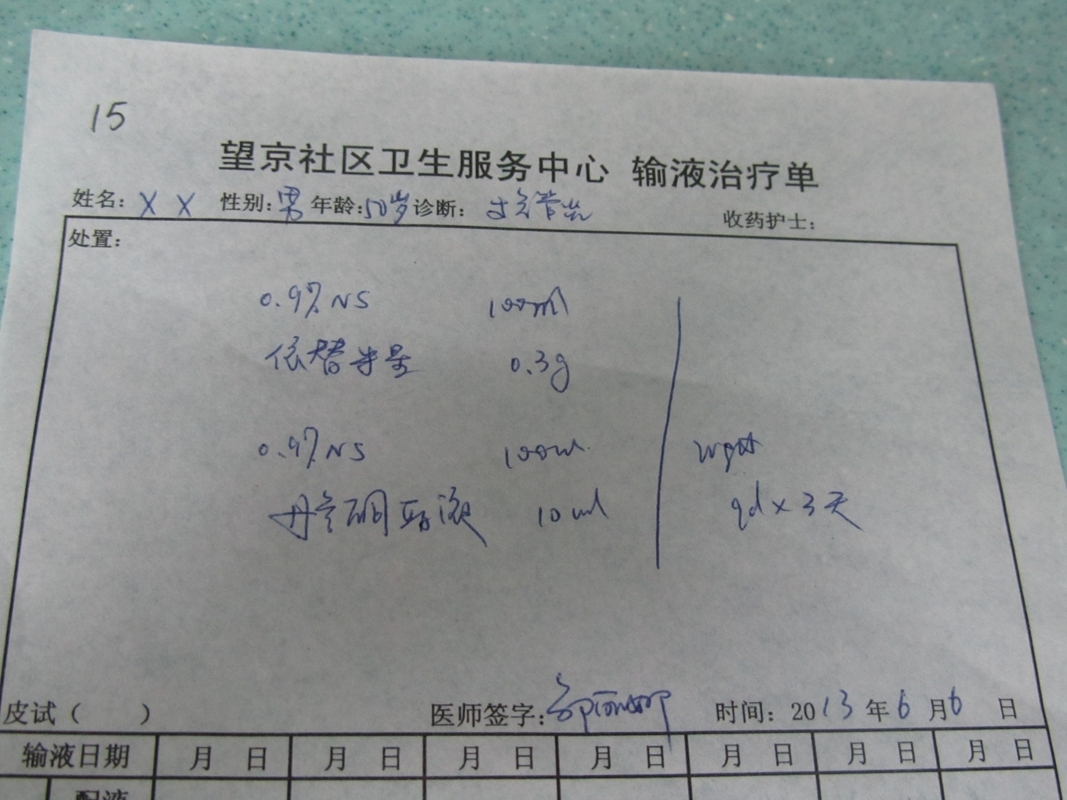 15
望京社区卫生服务中心 输液治疗单
姓名: X X 性别: 男 年龄: 50岁 诊断: 支气管炎 收药护士:
处置:
0.9% NS 100ml
依替米星 0.3g
0.9% NS 100ml
丹参酮 10ml
qd x 3天
皮试( ) 医师签字: 时间: 2013年6月6日
输液日期 月 日 月 日 月 日 月 日 月 日 月 日 月 日
配液